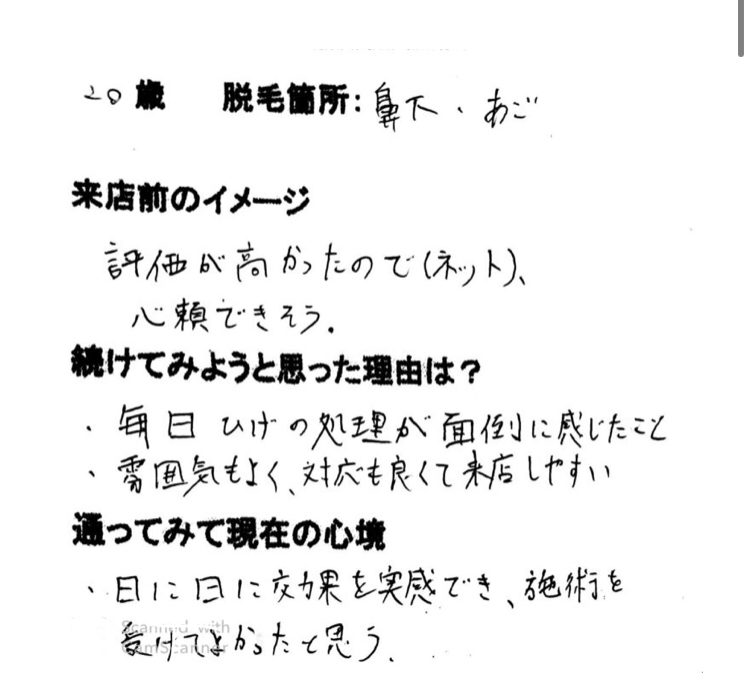 20歳　脱毛箇所：鼻下・あご
来店前のイメージ
評価が高かったので（ネット）、
心頼できそう。
続けてみようと思った理由は？
・毎日ひげの処理が面倒に感じたこと
・雰囲気もよく、対応も良くて来店しやすい
通ってみて現在の心境
・日に日に効果を実感でき、施術を
Scanned with
受けてよかったと思う。
CamScanner